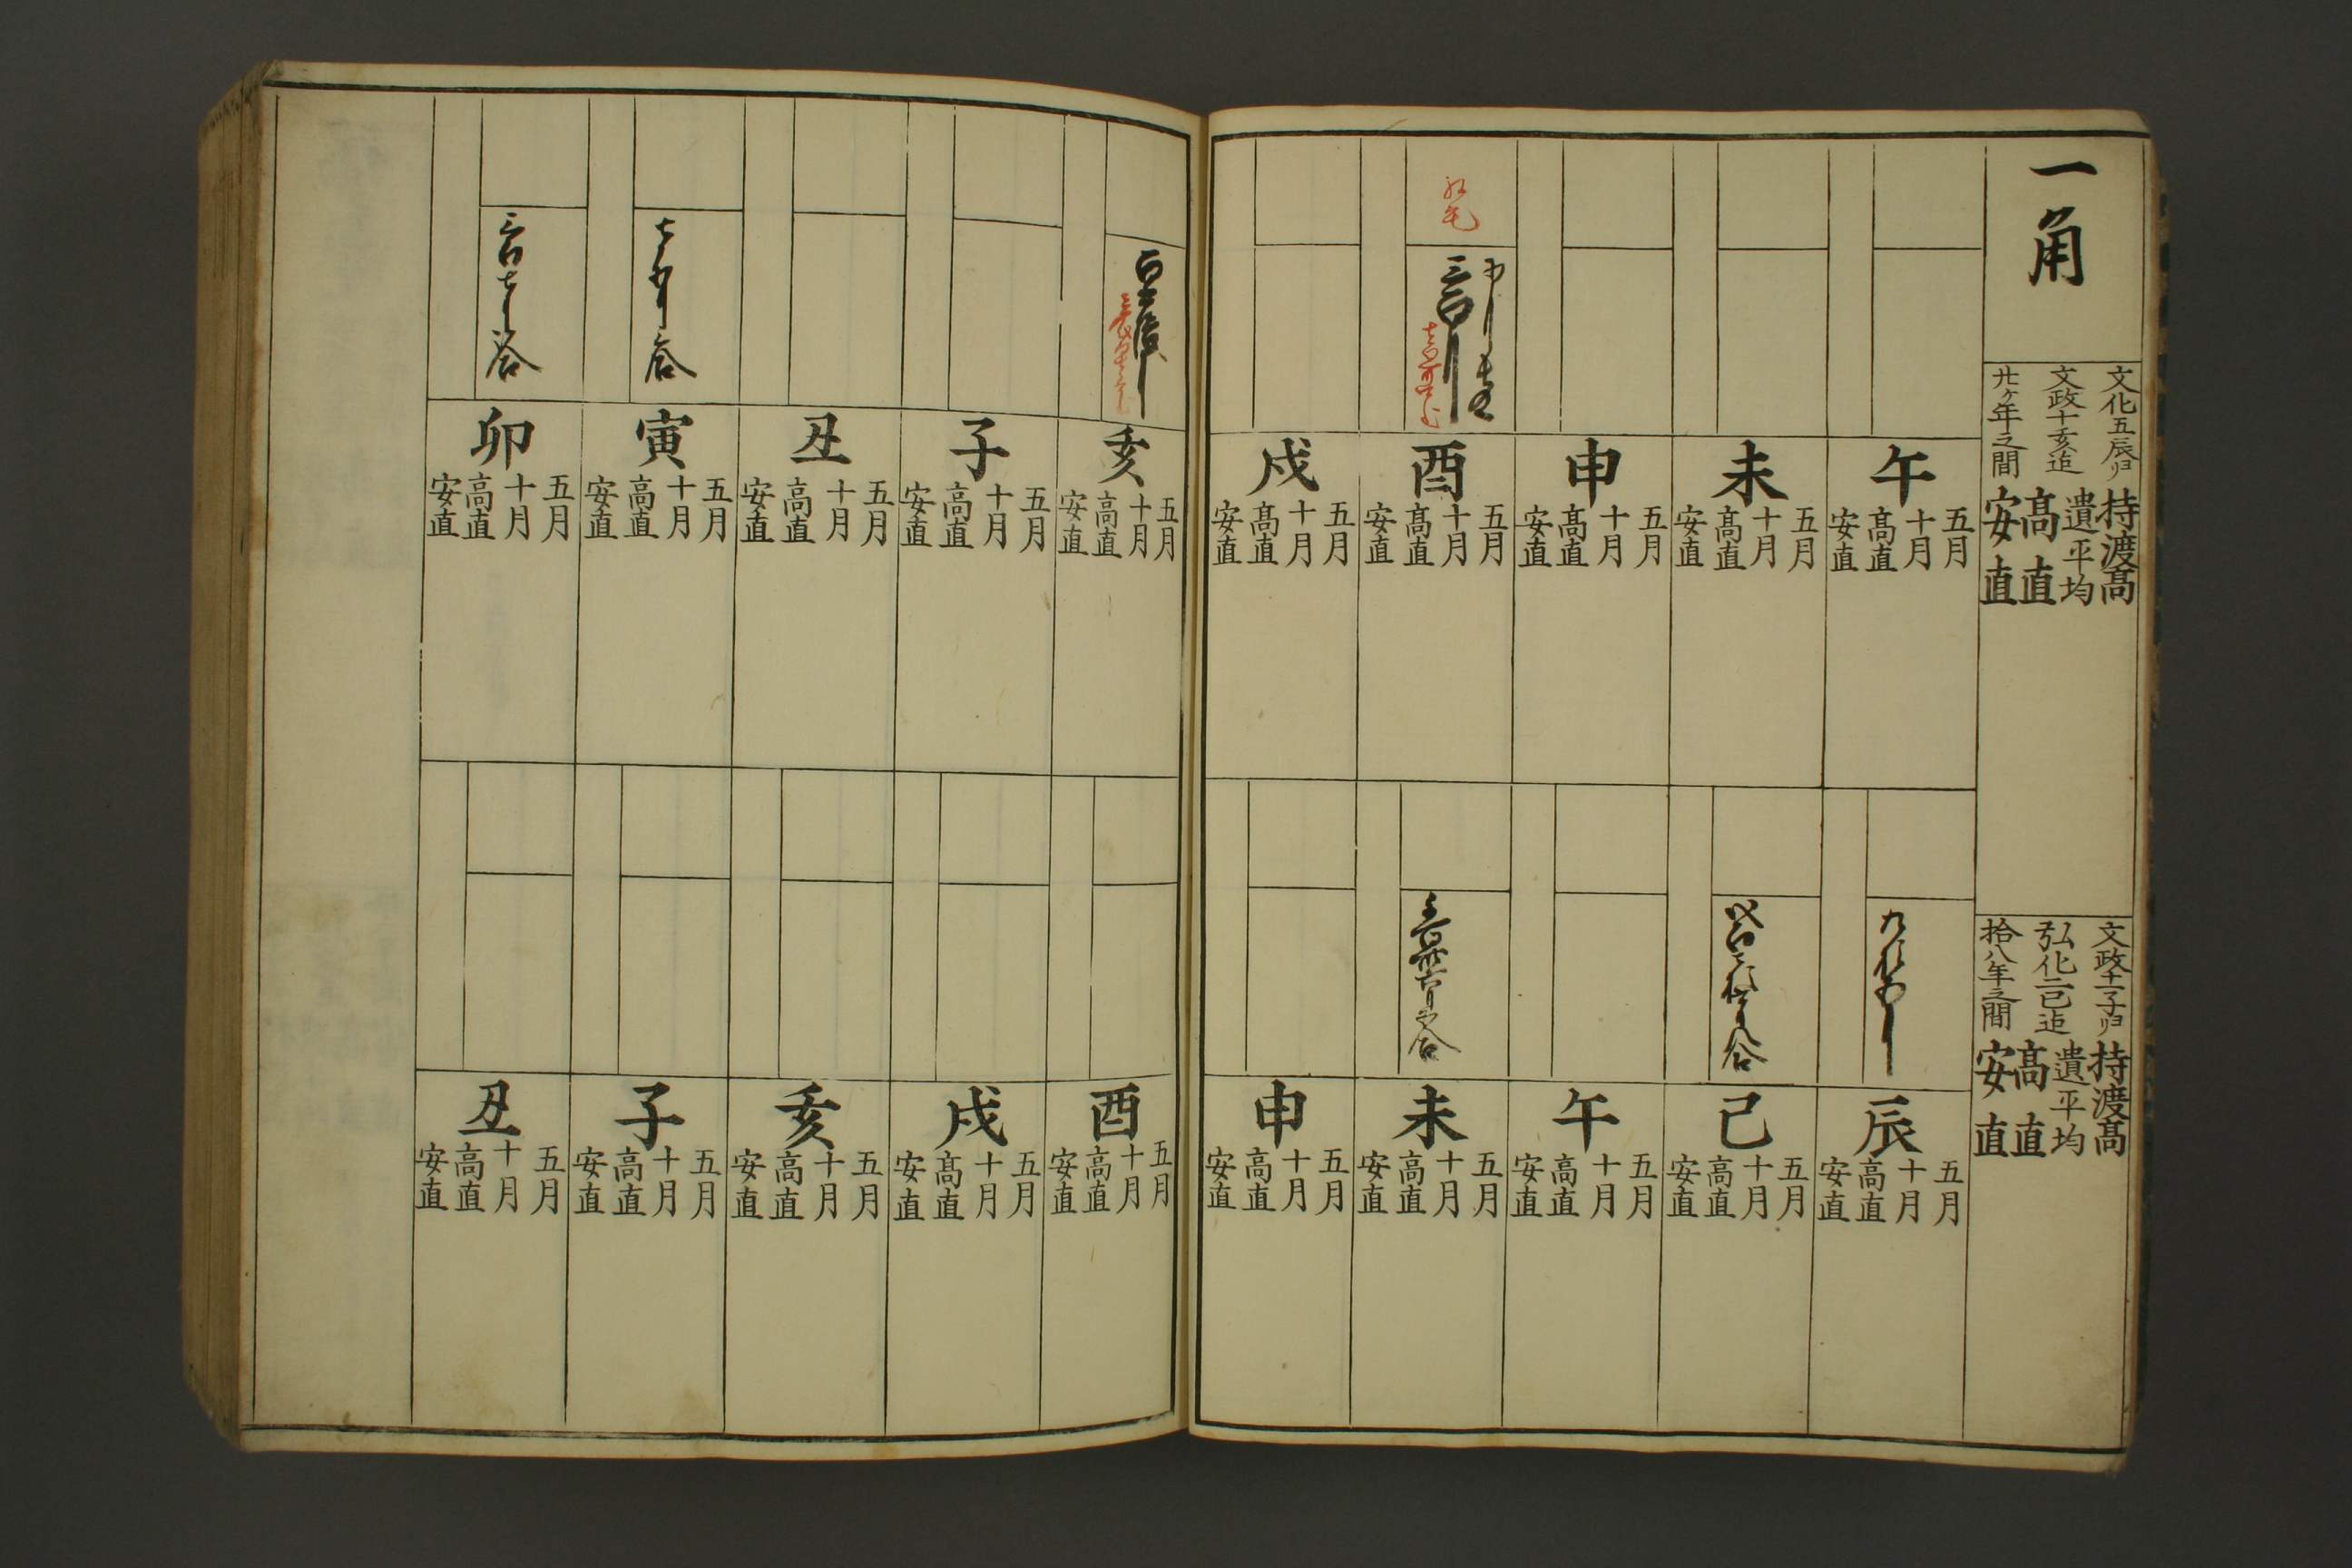 一角
文化五辰ゟ
文政十亥迄
廿ヶ年之間
持渡高
遣平均
高直
安直
文政十一子ゟ
弘化二巳迄
拾八年之間
持渡高
遣平均
高直
安直
午
五月
十月
高直
安直
未
五月
十月
高直
安直
申
五月
十月
高直
安直
紅毛
酉
五月
十月
高直
安直
戌
五月
十月
高直
安直
辰
五月
十月
高直
安直
巳
五月
十月
高直
安直
午
五月
十月
高直
安直
未
五月
十月
高直
安直
申
五月
十月
高直
安直
亥
五月
十月
高直
安直
子
五月
十月
高直
安直
丑
五月
十月
高直
安直
寅
五月
十月
高直
安直
卯
五月
十月
高直
安直
酉
五月
十月
高直
安直
戌
五月
十月
高直
安直
亥
五月
十月
高直
安直
子
五月
十月
高直
安直
丑
五月
十月
高直
安直